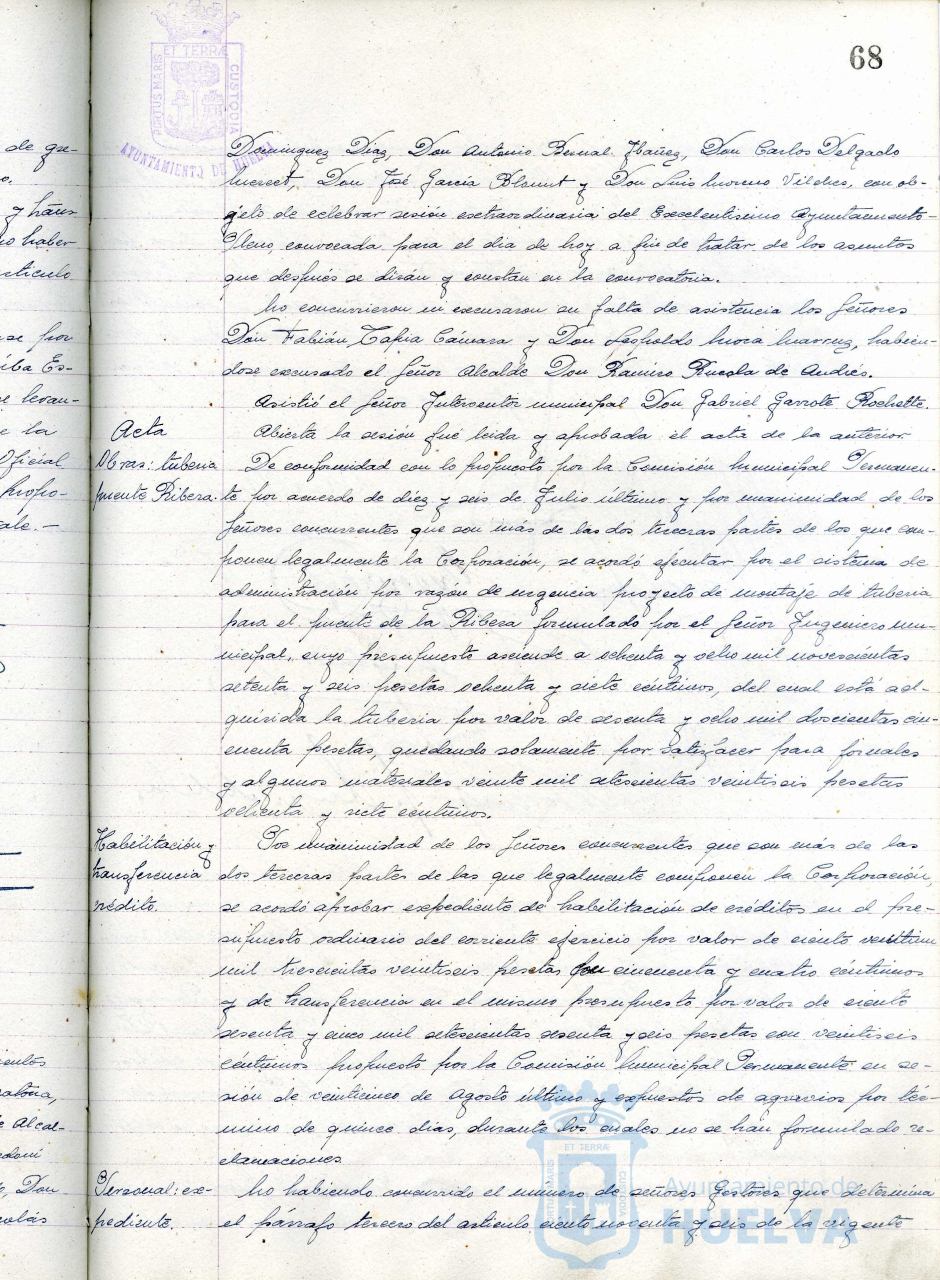 68
PORTUS MARIS ET TERRÆ CUSTODIA
AYUNTAMIENTO DE HUELVA
Dominguez Diaz, Don Antonio Bernal Ibañez, Don Carlos Delgado
Don José García Blount y Don Luis Moreno Vilches, con ob-
jeto de celebrar sesión extraordinaria del Excelentísimo Ayuntamiento
Pleno, convocada para el día de hoy a fin de tratar de los asuntos
que después se dirán y constan en la convocatoria.
No concurrieron ni excusaron su falta de asistencia los Señores
Don Fabián Tapia Cámara y Don Leopoldo Mora habien-
dose excusado el Señor Alcalde Don Ramiro de Andrés.
Asistió el Señor Interventor municipal Don Gabriel Garrote Rochette.
Acta
Abierta la sesión fué leida y aprobada el acta de la anterior
Obras: tuberia
puente Ribera.
De conformidad con lo propuesto por la Comisión Municipal Permanen-
te por acuerdo de diez y seis de Julio último y por unanimidad de los
Señores concurrentes que son más de las dos terceras partes de los que com-
ponen legalmente la Corporación, se acordó ejecutar por el sistema de
administración por razón de urgencia proyecto de montaje de tuberia
para el puente de la Ribera formulado por el Señor Ingeniero mu-
nicipal, cuyo presupuesto asciende a ochenta y ocho mil novescientas
setenta y seis pesetas ochenta y siete céntimos, del cual está ad-
quirida la tuberia por valor de sesenta y ocho mil doscientas cin-
cuenta pesetas, quedando solamente por satisfacer para jornales
y algunos materiales veinte mil setescientas veintiseis pesetas
ochenta y siete céntimos.
Habilitación y
transferencia
crédito.
Por unanimidad de los Señores concurrentes que son más de las
dos terceras partes de las que legalmente componen la Corporación,
se acordó aprobar expediente de habilitación de créditos en el pre-
supuesto ordinario del corriente ejercicio por valor de ciento veintiun
mil trescientas veintiseis pesetas con cincuenta y cuatro céntimos
y de transferencia en el mismo presupuesto por valor de ciento
sesenta y cinco mil setescientas sesenta y seis pesetas con veintiseis
céntimos propuesto por la Comisión Municipal Permanente en se-
sión de veinticinco de Agosto último y expuestos de agravios por tér-
mino de quince días, durante los cuales no se han formulado re-
clamaciones.
Personal: ex-
pediente.
No habiendo concurrido el número de señores Gestores que determina
el párrafo tercero del articulo ciento noventa y seis de la vigente
de gre-
y trans-
no haber
articulo
se por
Es-
levan-
la
Oficial
propo-
ale.-
Alcal-
Don
Ayuntamiento de
HUELVA